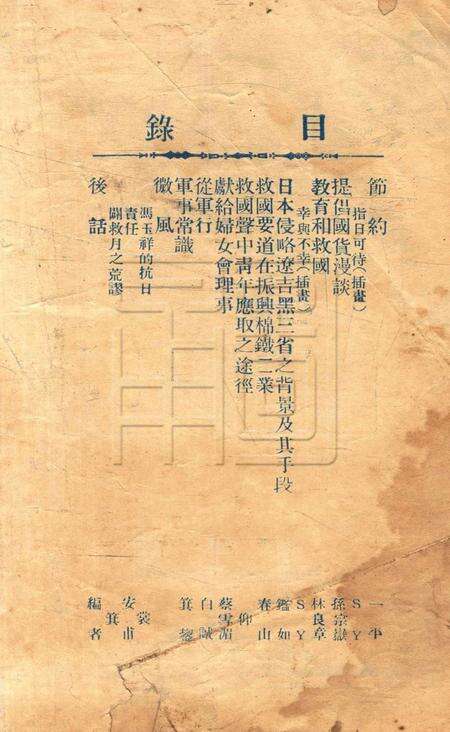 目錄
節約
指日可待(插畫)
提倡國貨漫談
教育和救國
幸與不幸(插畫)
日本侵略遼吉黑三省之背景及其手段
救國要道在振興棉鐵二業
救國聲中靑年應取之途徑
獻給婦女會理事
從軍行
軍事常識
徵風
馮玉祥的抗日
責任
闢救月之荒謬
後話
一
S Y
孫宗
林良章
S Y
鑑如
春山
仰
蔡雪湄
白
箕
裳甫
安箕
編者